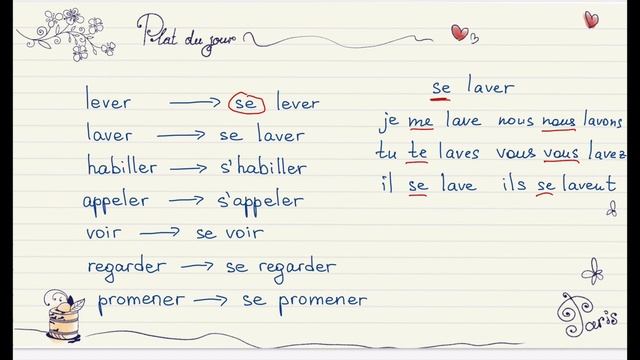 Plat du jour
lever → se lever
laver → se laver
habiller → s'habiller
appeler → s'appeler
voir → se voir
regarder → se regarder
promener → se promener
se laver
je me lave nous nous lavons
tu te laves vous vous lavez
il se lave ils se lavent
Paris